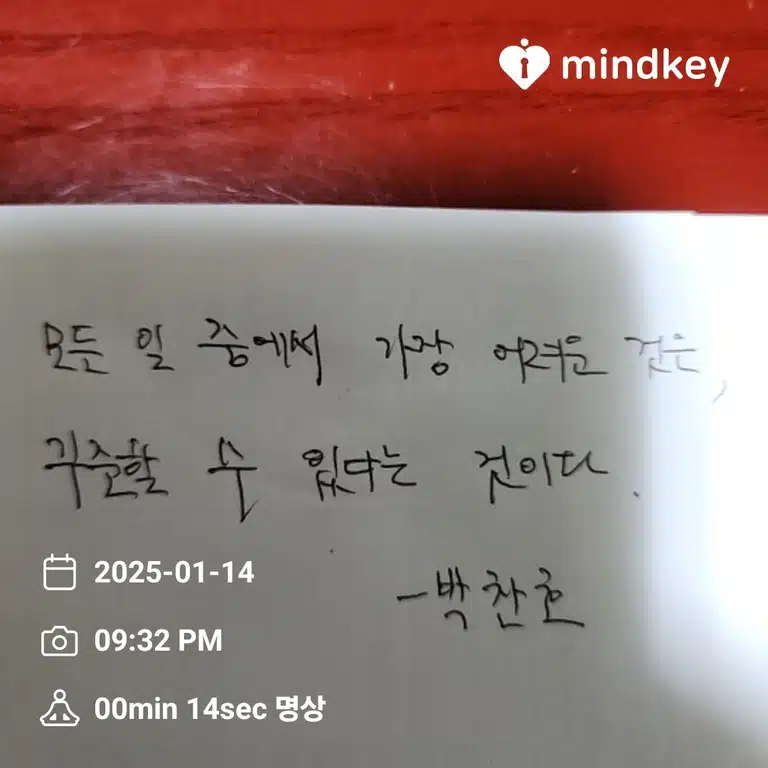 mindkey
모든 일 중에서 가장 어려운 것은,
꾸준할 수 있다는 것이다.
-박찬호
2025-01-14
09:32 PM
00min 14sec 명상